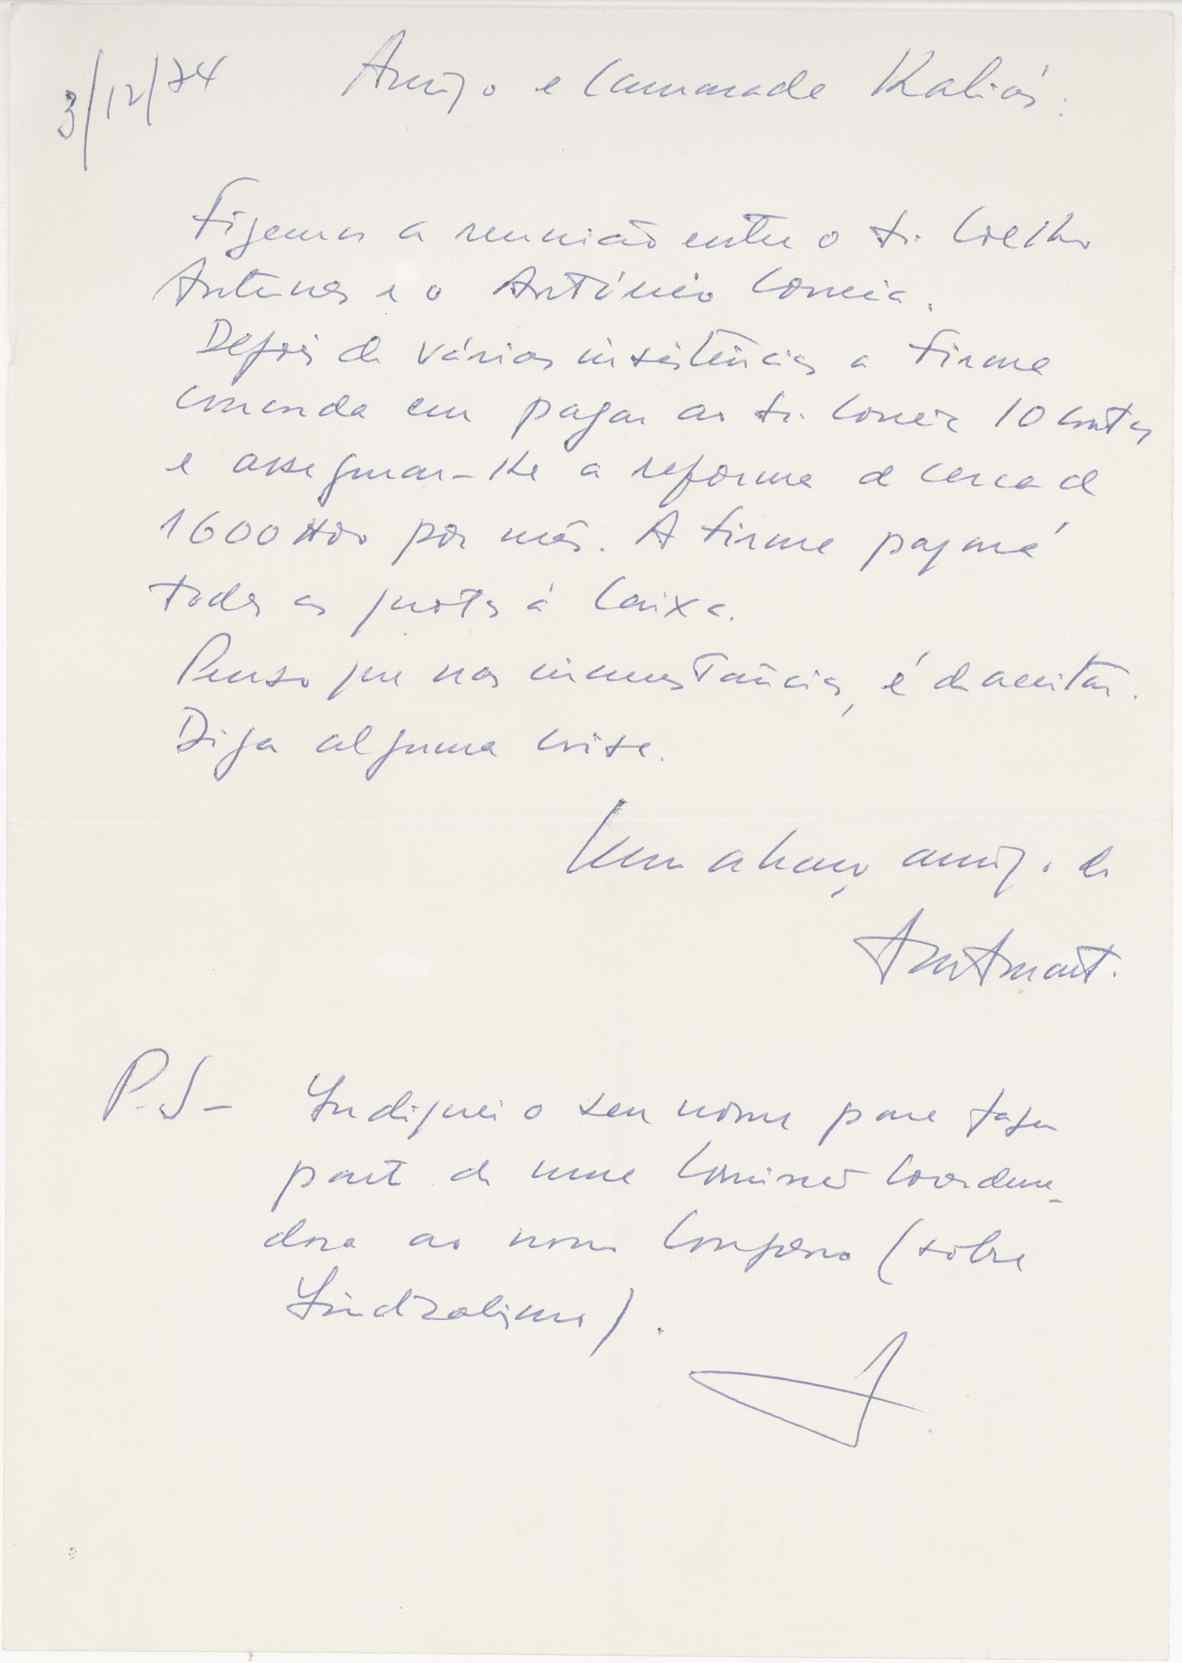 3/12/74
Amigo e Camarada Kalidás:
Fizemos a reunião entre o Sr. Coelho
Antunes e o António Correia.
Depois de várias insistências a Firma
concorda em pagar ao Sr. Correia 10 contos
e assegurar-lhe a reforma de cerca de
1600$00 por mês. A firma pagará
todas as quotas à Caixa.
Penso que nas circunstâncias, é de aceitar.
Diga alguma coisa.
Um abraço amigo do
P.S- Indiquei o seu nome para fazer
parte de uma Comissão Coordena-
dora ao nosso Congresso (sobre
Sindicalismo).